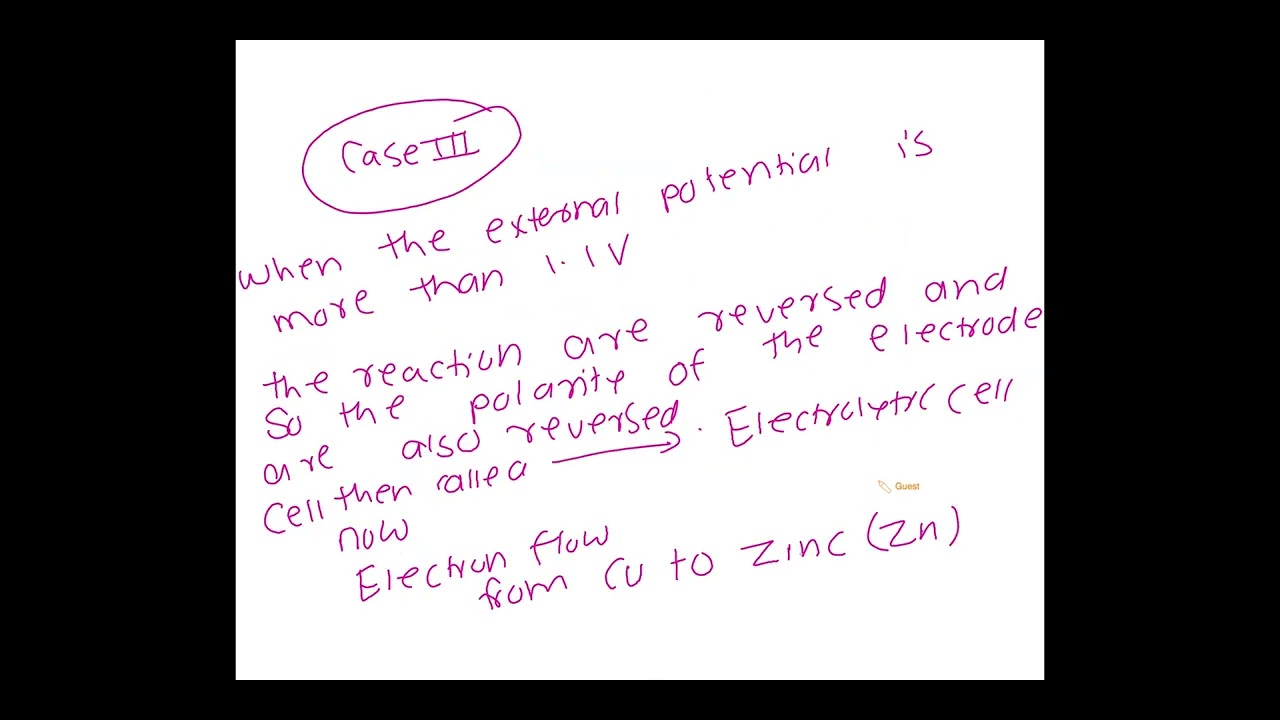 Case III
when the external potential is
more than 1.1V
the reaction are reversed and
So the polarity of the electrode
are also reversed.
Cell then called → Electrolytic cell
now
Electron flow
from Cu to zinc (Zn)
Guest